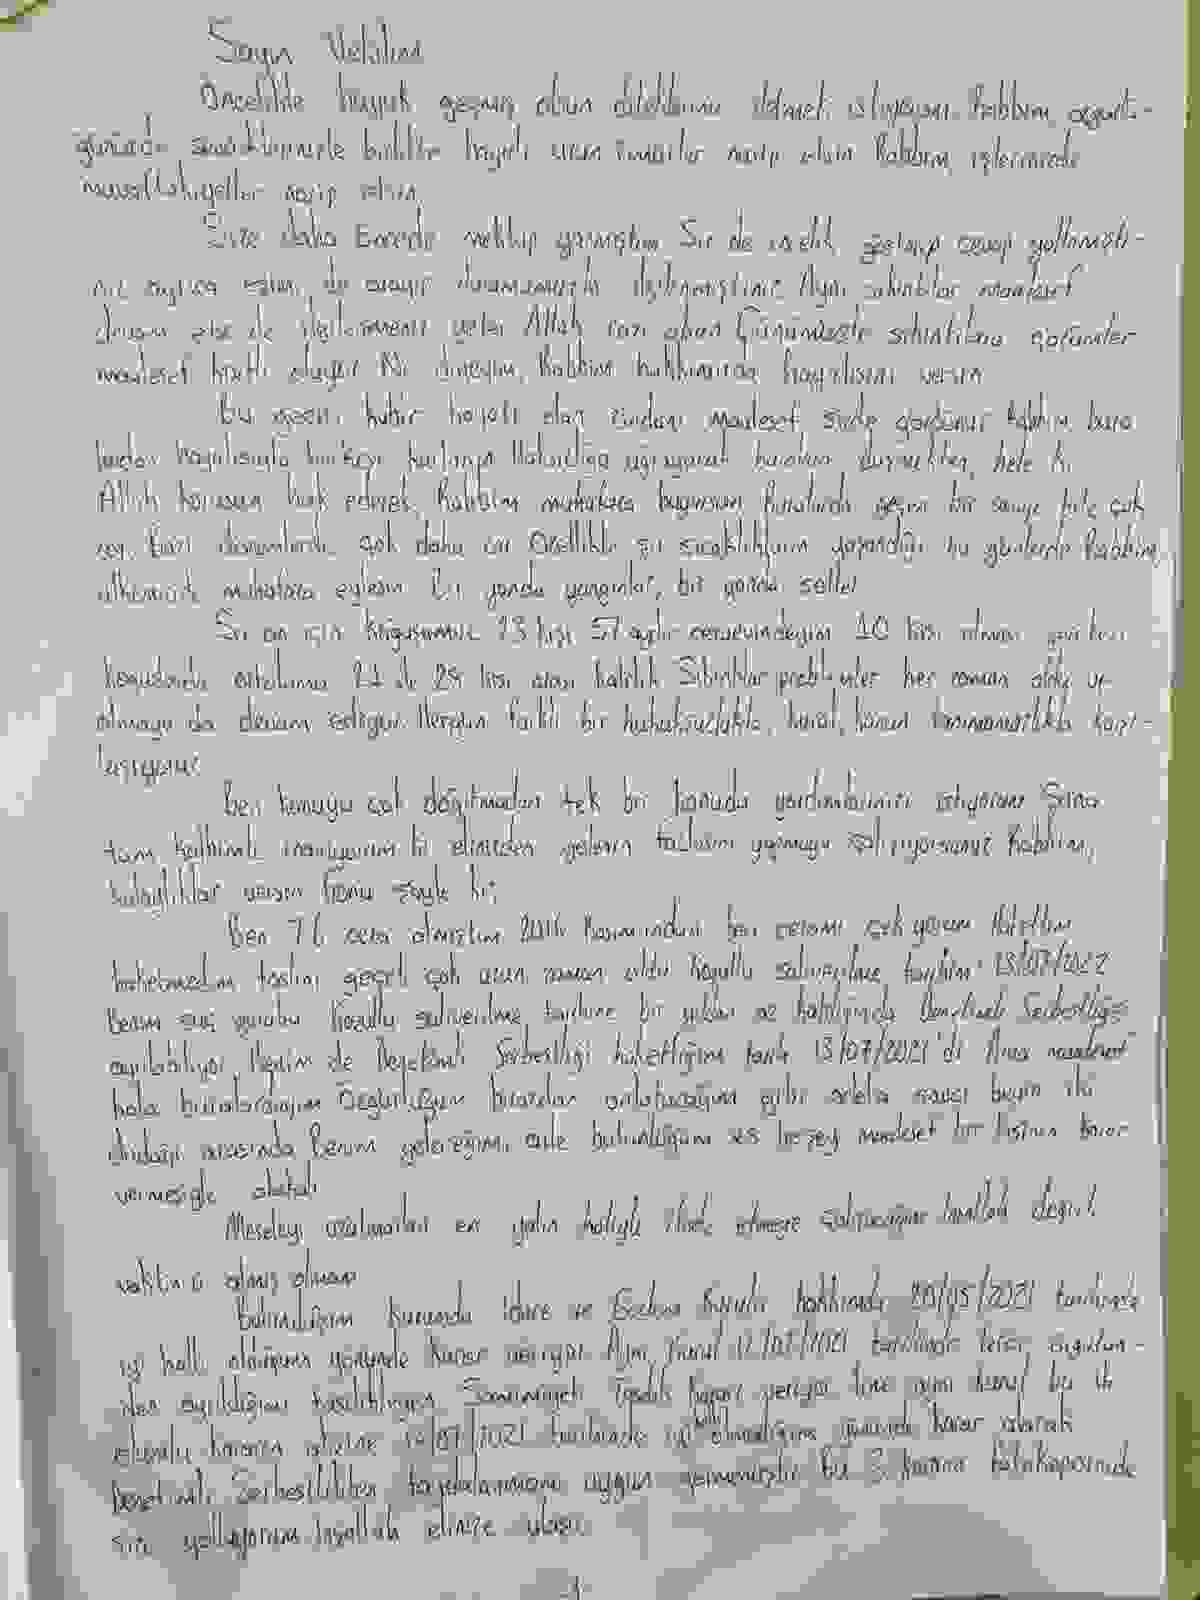 Sayın Vekilim
Öncelikle büyük geçmiş olsun dileklerimi iletmek istiyorum. Rabbim, özgürlü-
ğünüzde sevdiklerinizle birlikte hayırlı uzun ömürler nasip etsin. Rabbim, işlerinizde
muvaffakiyetler nasip etsin.
Size daha Evvelde mektup yazmıştım. Siz de incelik gösterip cevap yollamıştı-
nız ayrıca eşim de arayıp durumumuzla ilgilenmiştiniz. Aynı sıkıntılar maalesef
devam etse de ilgilenmeniz yeter. Allah razı olsun. Günümüzde sıkıntılara çözümler
maalesef kısıtlı oluyor. Ne diyeyim, Rabbim hakkımızda hayırlısını versin.
Bu geçici kabir hayatı olan zindanı maalesef sizde gördünüz. Rabbim bura
lardan hayırlısıyla herkesi kurtarıp Haksızlığa uğrayarak buralara düşmekten, hele ki
Allah korusun hak ederek, Rabbim muhafaza buyursun. Buralarda geçen bir saniye bile çok
zor. Bazı dönemlerde çok daha zor. Özellikle şu sıcaklıkların yaşandığı bu günlerde Rabbim,
ülkemizi muhafaza eylesin. Bir yanda yangınlar, bir yanda seller.
Şu an için koğuşumuz 23 kişi. 57 aydır cezaevindeyim 10 kişi olması gereken
koğuşlarda ortalama 21 ile 29 kişi arası kaldık. Sıkıntılar problemler her zaman oldu ve
olmaya da devam ediyor. Hergün farklı bir hukuksuzlukla, kural, kanun tanımamazlıkla karşı-
laşıyoruz.
Ben konuyu çok dağıtmadan tek bir konuda yardımlarınızı istiyorum. Şuna
tam kalbimle inanıyorum ki elinizden gelenin fazlasını yapmaya çalışıyorsunuz. Rabbim,
kolaylıklar versin. Konu şöyle ki;
Ben 7,6 ceza almıştım. 2016 Kasımından beri cezamı çekiyorum. Hakettim
haketmedim kısmını geçeli çok uzun zaman oldu. Koşullu salıverilme tarihim 13/07/2022
Benim suç gurubu Koşullu salıverilme tarihine bir yıldan az kaldığında Denetimli Serbestliğe
ayrılabiliyor. Benim de Denetimli Serbestliği hakettiğim tarih 13/07/2021'di. Ama maalesef
hala buralardayım. Özgürlüğüm birazdan anlatacağım gibi adeta savcı beyin iki
dudağı arasında. Benim geleceğim, aile bütünlüğüm vs herşey maalesef bir kişinin karar
vermesiyle alakalı.
Meseleyi uzatmadan en yalın haliyle ifade etmeye çalışacağım. İnşallah değerli
vaktinizi almış olmam.
Bulunduğum kurumda İdare ve Gözlem Kurulu hakkımda /2021 tarihinde
iyi halli olduğum yönünde karar veriyor. Aynı kurul /2021 tarihinde
ayrıldığımı Samimiyeti Kararı veriyor. Yine aynı kurul bu iki
olumlu kararın aksine /07/2021 tarihinde iyi halli olmadığım yönünde karar alarak
Denetimli Serbestlikten faydalanmamı uygun görmemiştir. Bu 3 kararın fotokopisinide
size yolluyorum. İnşallah elinize ulaşır.
1